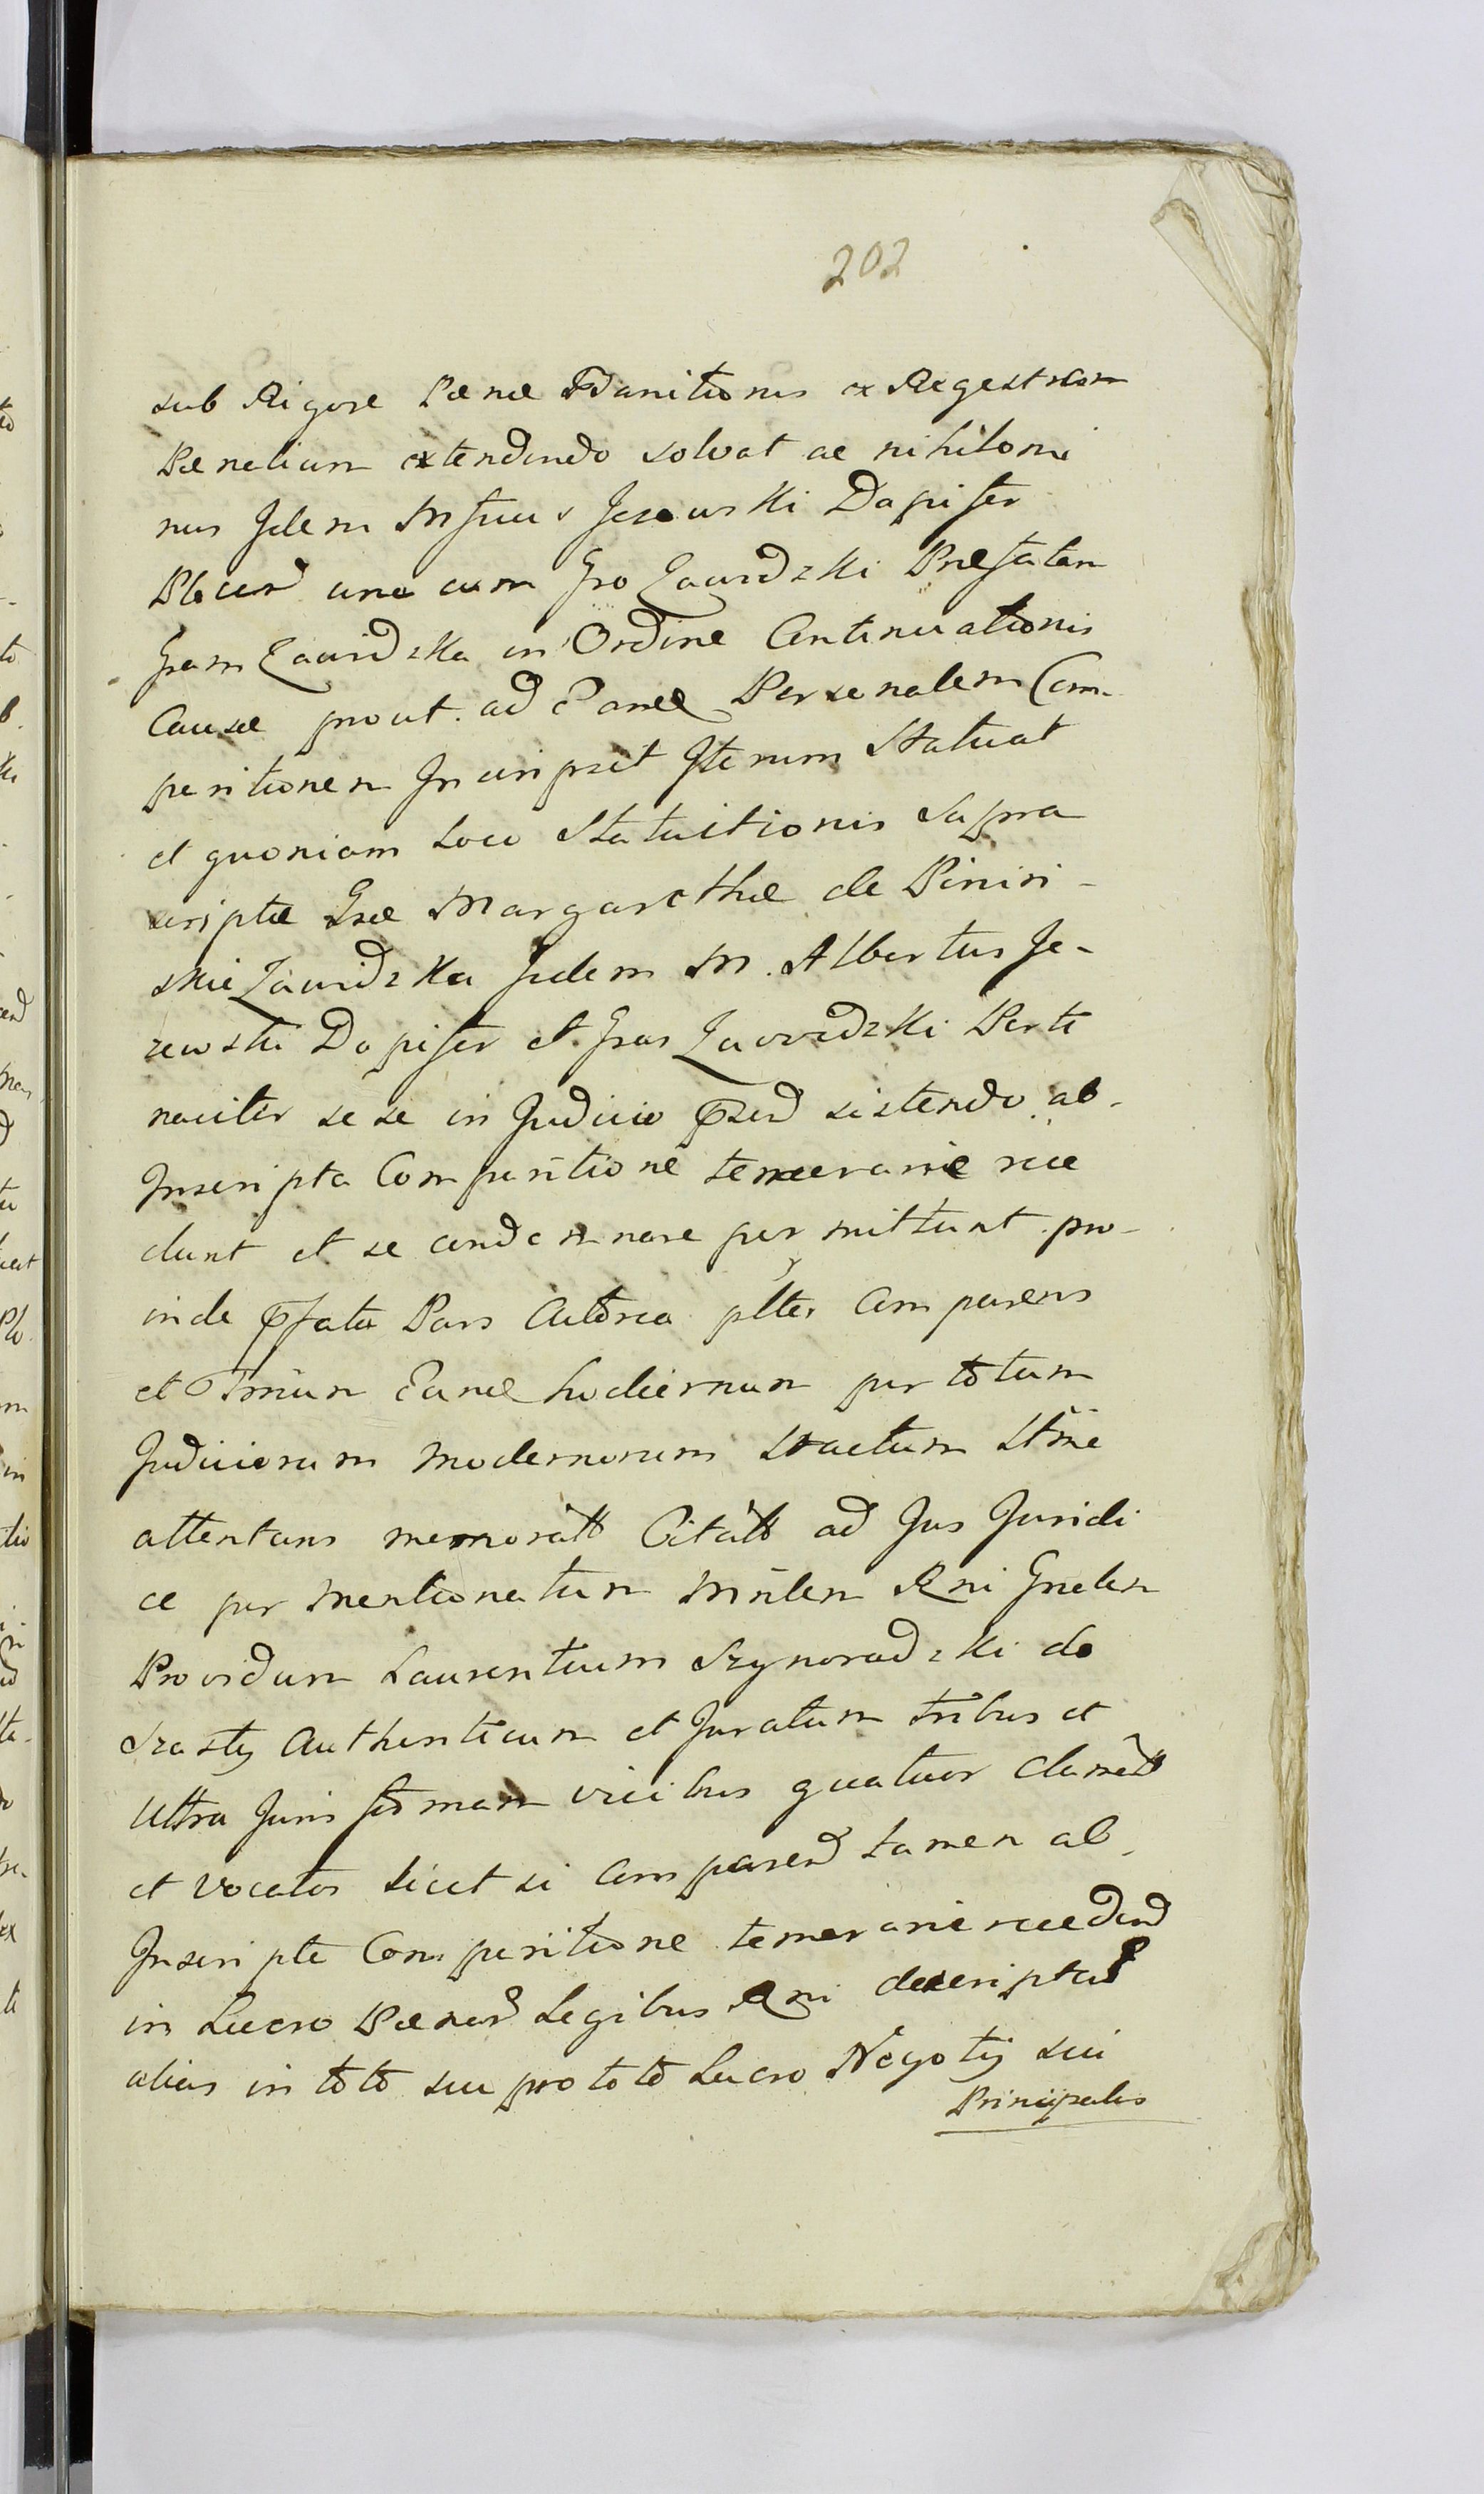 202
sub Rigore Pænæ Banitionis ex Regestram
Pænalium extendendo solvat ac nihilomi
nus Idem Mfcus Jezewski Dapifer
Plocen una cum Gro Zawidzki Præfatam
Gram Zawidzka in Ordine Continuationis
Causæ prout ad Eande Personalem Com-
paritionem Inscripsit Iterum Statuat
et quoniam Loco Statuitionis Supra
scriptæ Gsæ Margarethæ de Pinini-
skie Zawidzka Iidem M. Albertus Je-
zewski Dapifer et Grus Zawidzki Perti
naciter sese in Judicio Psend sistendo ab
Inscripta Comparitione temerarie rece
dunt et se condemnare permittunt pro-
inde Pfata Pars Actorea plter Comparens
et Tminum Eunde hodiernum per totum
Judiciorum modernorum tractum Stme
attentans memoratt Citatt ad Jus Juridi
ce per mentionatum Mnlem Rni Gnelem
Providum Laurentium Szynoradzki de
Szasty Authenticum et Juratum tribus et
Ultra Juris formam vicibus quatuor Clamatt
et Vocatos licet si Comparend tamen ab
Inscripta Comparitione temerarie recedend
in Lucro Pænar Legibus Rni descriptar
alias in toto seu pro toto Lucro Negotij sui
Principalis